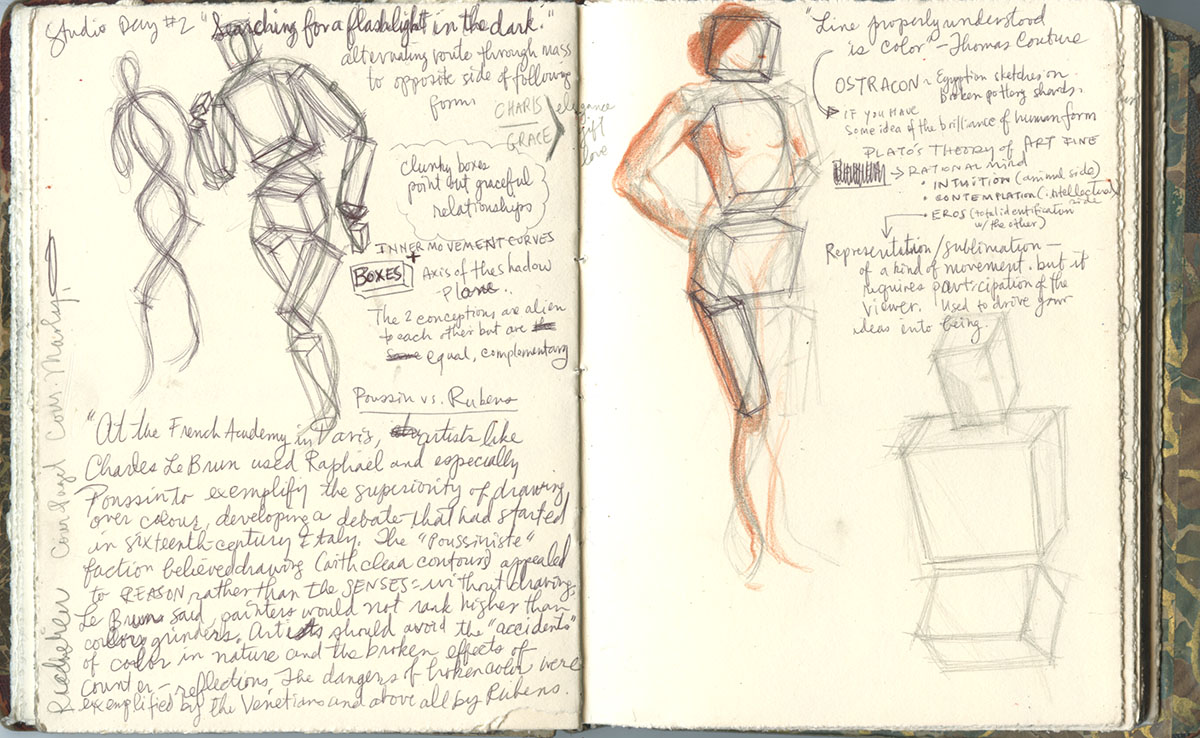 Studio Day #2 "Searching for a flashlight in the dark."
alternating route through mass
to opposite side of following
form
CHARIS
GRACE
elegance
gift
love
Clunky boxes
point out graceful
relationships
INNER MOVEMENT CURVES
+
BOXES
Axis of the shadow
plane.
The 2 conceptions are alien
to each other but are the
same equal, complementary
Poussin vs. Rubens
"At the French Academy in Paris, artists like
Charles Le Brun used Raphael and especially
Poussin to exemplify the superiority of drawing
over colour, developing a debate that had started
in sixteenth-century Italy. The "Poussiniste"
faction believed drawing (with clear contours) appealed
to REASON rather than the SENSES = without drawing,
Le Brun said, painters would not rank higher than
colour grinders. Artists should avoid the "accidents"
of color in nature and the broken effects of
counter-reflections. The dangers of broken color were
exemplified by the Venetians and above all by Rubens.
Cour Marly.
"Line properly understood
is color" - Thomas Couture
OSTRACON - Egyptian sketches on
broken pottery shards.
IF YOU HAVE
some idea of the brilliance of human form
PLATO'S THEORY of ART FINE
RATIONAL mind
• INTUITION (animal side)
• CONTEMPLATION (intellectual
side
• EROS (total identification
w/the other)
Representation/sublimation -
of a kind of movement. but it
requires participation of the
viewer. Used to drive your
ideas into being.